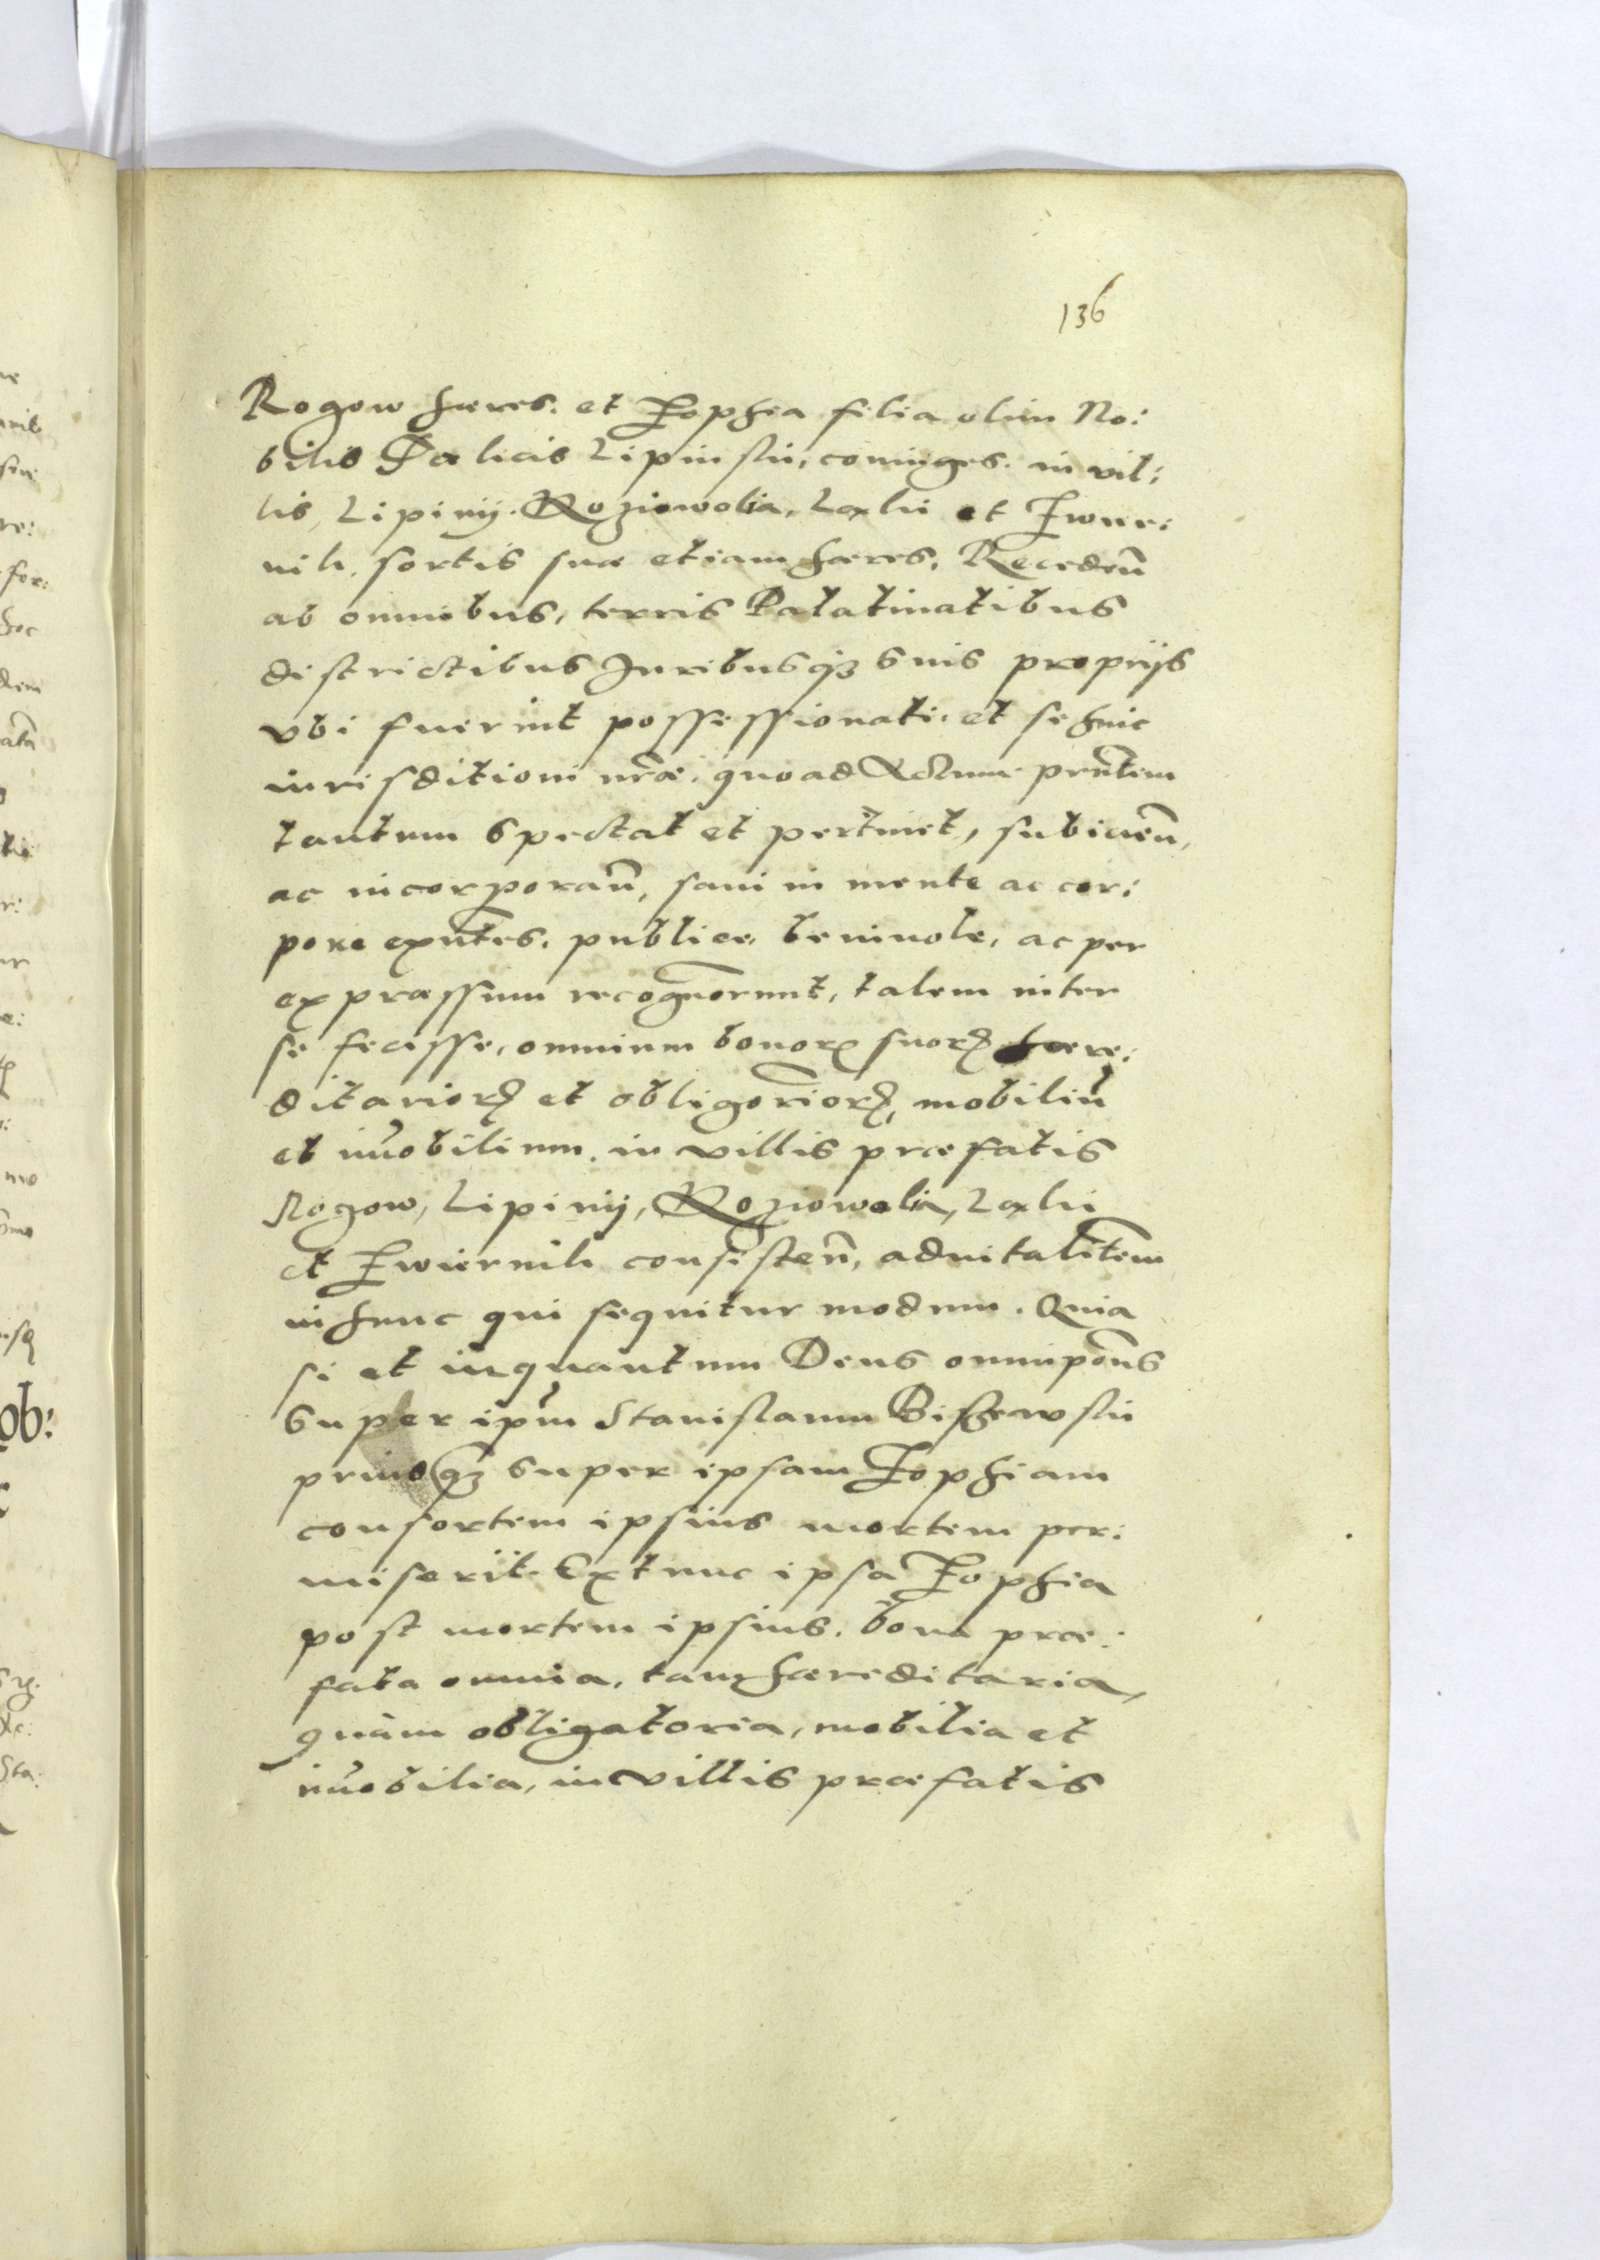 136
Rogow hæres. et Zophia filia olim No:
bilis Fælicis Lipinski, coniuges. in vil:
lis, Lipiny. Roziowolia, Laski et Zwier:
nik. sortis suæ etiam hæres, Recedeñ
ab omnibus, terris Palatinatibus
districtibus Juribusqꝫ suis proprijs
vbi fuerint possessionati. et se huic
iurisditioni nr̃æ. quoad Actum prñtem
tantum spectat et pertinet, subicieñ,
ac incorporañ, sani in mente ac cor:
pore exñtes. publice, beniuole, ac per
expræssum recogñorunt, talem inter
se fecisse, omnium bonorꝫ suorꝫ hære:
ditariorꝫ et obligõriorꝫ, mobiliũ
et im̃obilium. in villis præfatis
Rogow, Lipiny, Roziowolia, Laski
et Zwiernik consisteñ, aduitalit̃em
in hunc qui sequitur modum. Quia
si et inquantum Deus omnipõns
super ip̃m Stanislaum Bischewski
priusqꝫ super ipsam Zophiam
consortem ipsius mortem per:
miserit. Extunc ipsa Zophia
post mortem ipsius. bona præ:
fata omnia, tam hæreditaria,
quàm obligatoria, mobilia et
im̃obilia, in villis præfatis